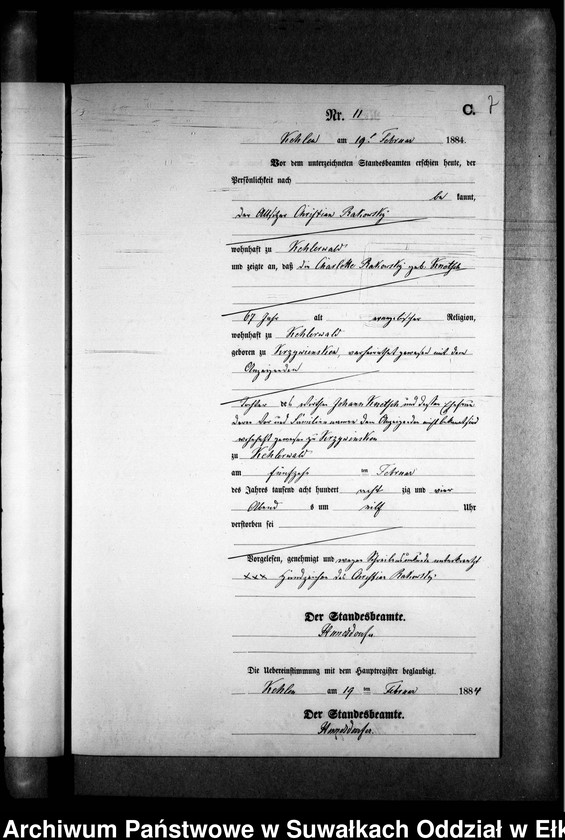 C. 7
Nr. 11
Kehlen am 19t Februar 1884.
Vor dem unterzeichneten Standesbeamten erschien heute, der
Persönlichkeit nach
be kannt,
der Altsitzer Christian Rakowsky
wohnhaft zu Kehlerwald
und zeigte an, daß die Charlotte Rakowsky geb.
67 Jahr alt evangelischer Religion,
wohnhaft zu Kehlerwald
geboren zu verheirathet gewesen mit dem
Anzeigenden
Tochter des Johann und dessen Ehefrau
deren Vor und Familienname dem Anzeigenden nicht bekannt sind
wohnhaft gewesen zu
zu Kehlerwald
am fünfzehn ten Februar
des Jahres tausend acht hundert acht zig und vier
Abend s um elf Uhr
verstorben sei
Vorgelesen, genehmigt und wegen Schreibensunkunde unterkreuzt
××× Handzeichen des Christian Rakowsky
Der Standesbeamte.
Die Uebereinstimmung mit dem Hauptregister beglaubigt.
Kehlen am 19 ten Februar 1884
Der Standesbeamte.
Archiwum Państwowe w Suwałkach Oddział w Ełk